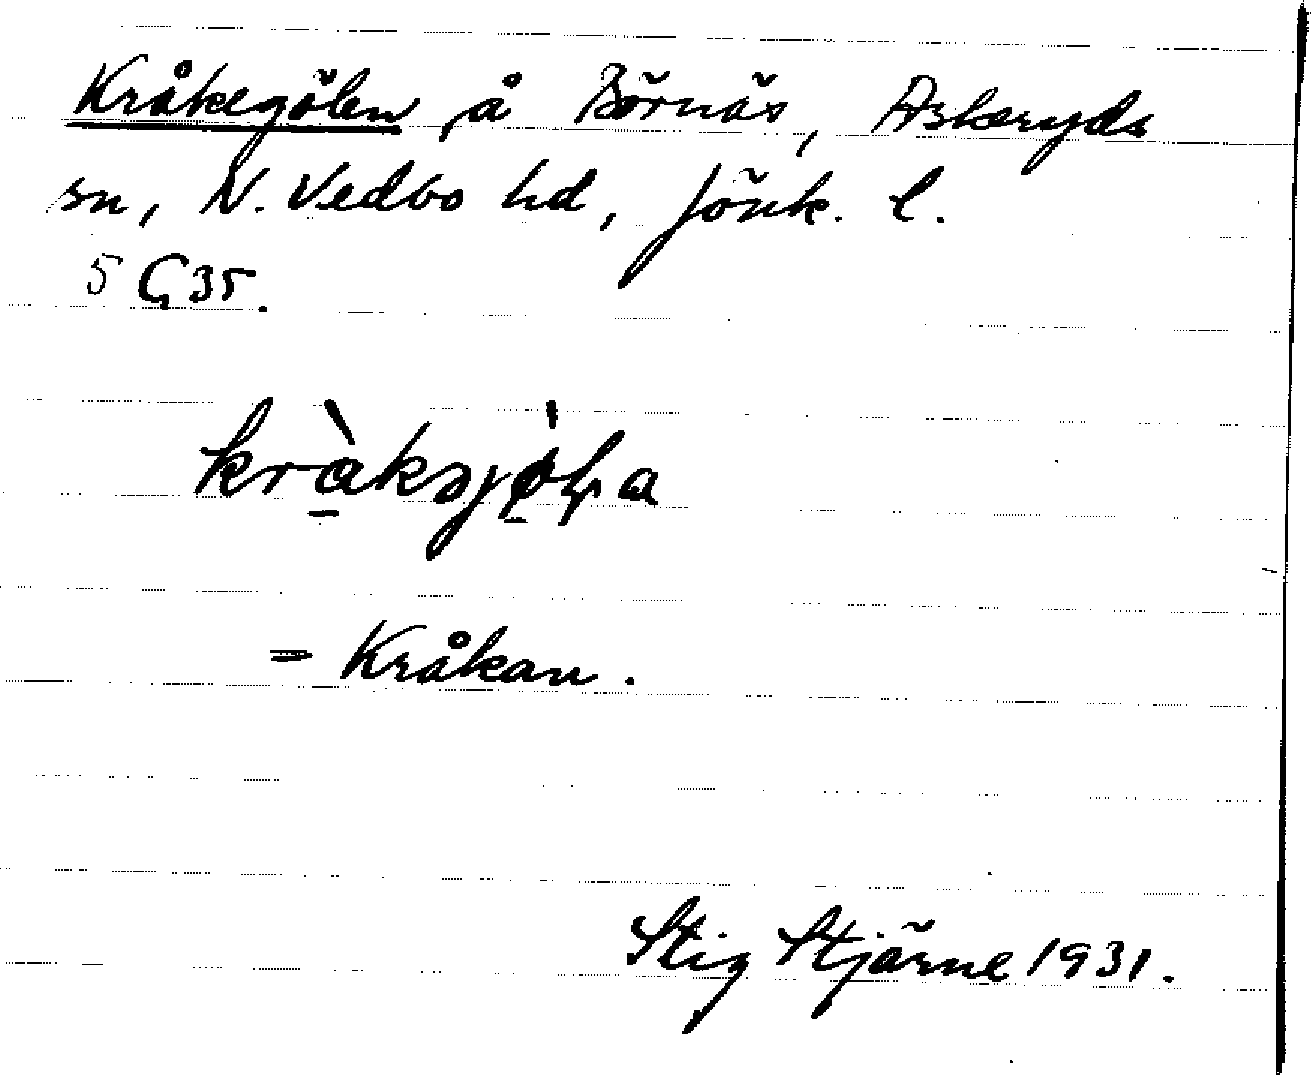 Kråkegölen å Börnäs, Askeryds
sn, N. Vedbo hd, Jönk. l.
5 G 35.
= Kråkan.
Stig Stjärne 1931.